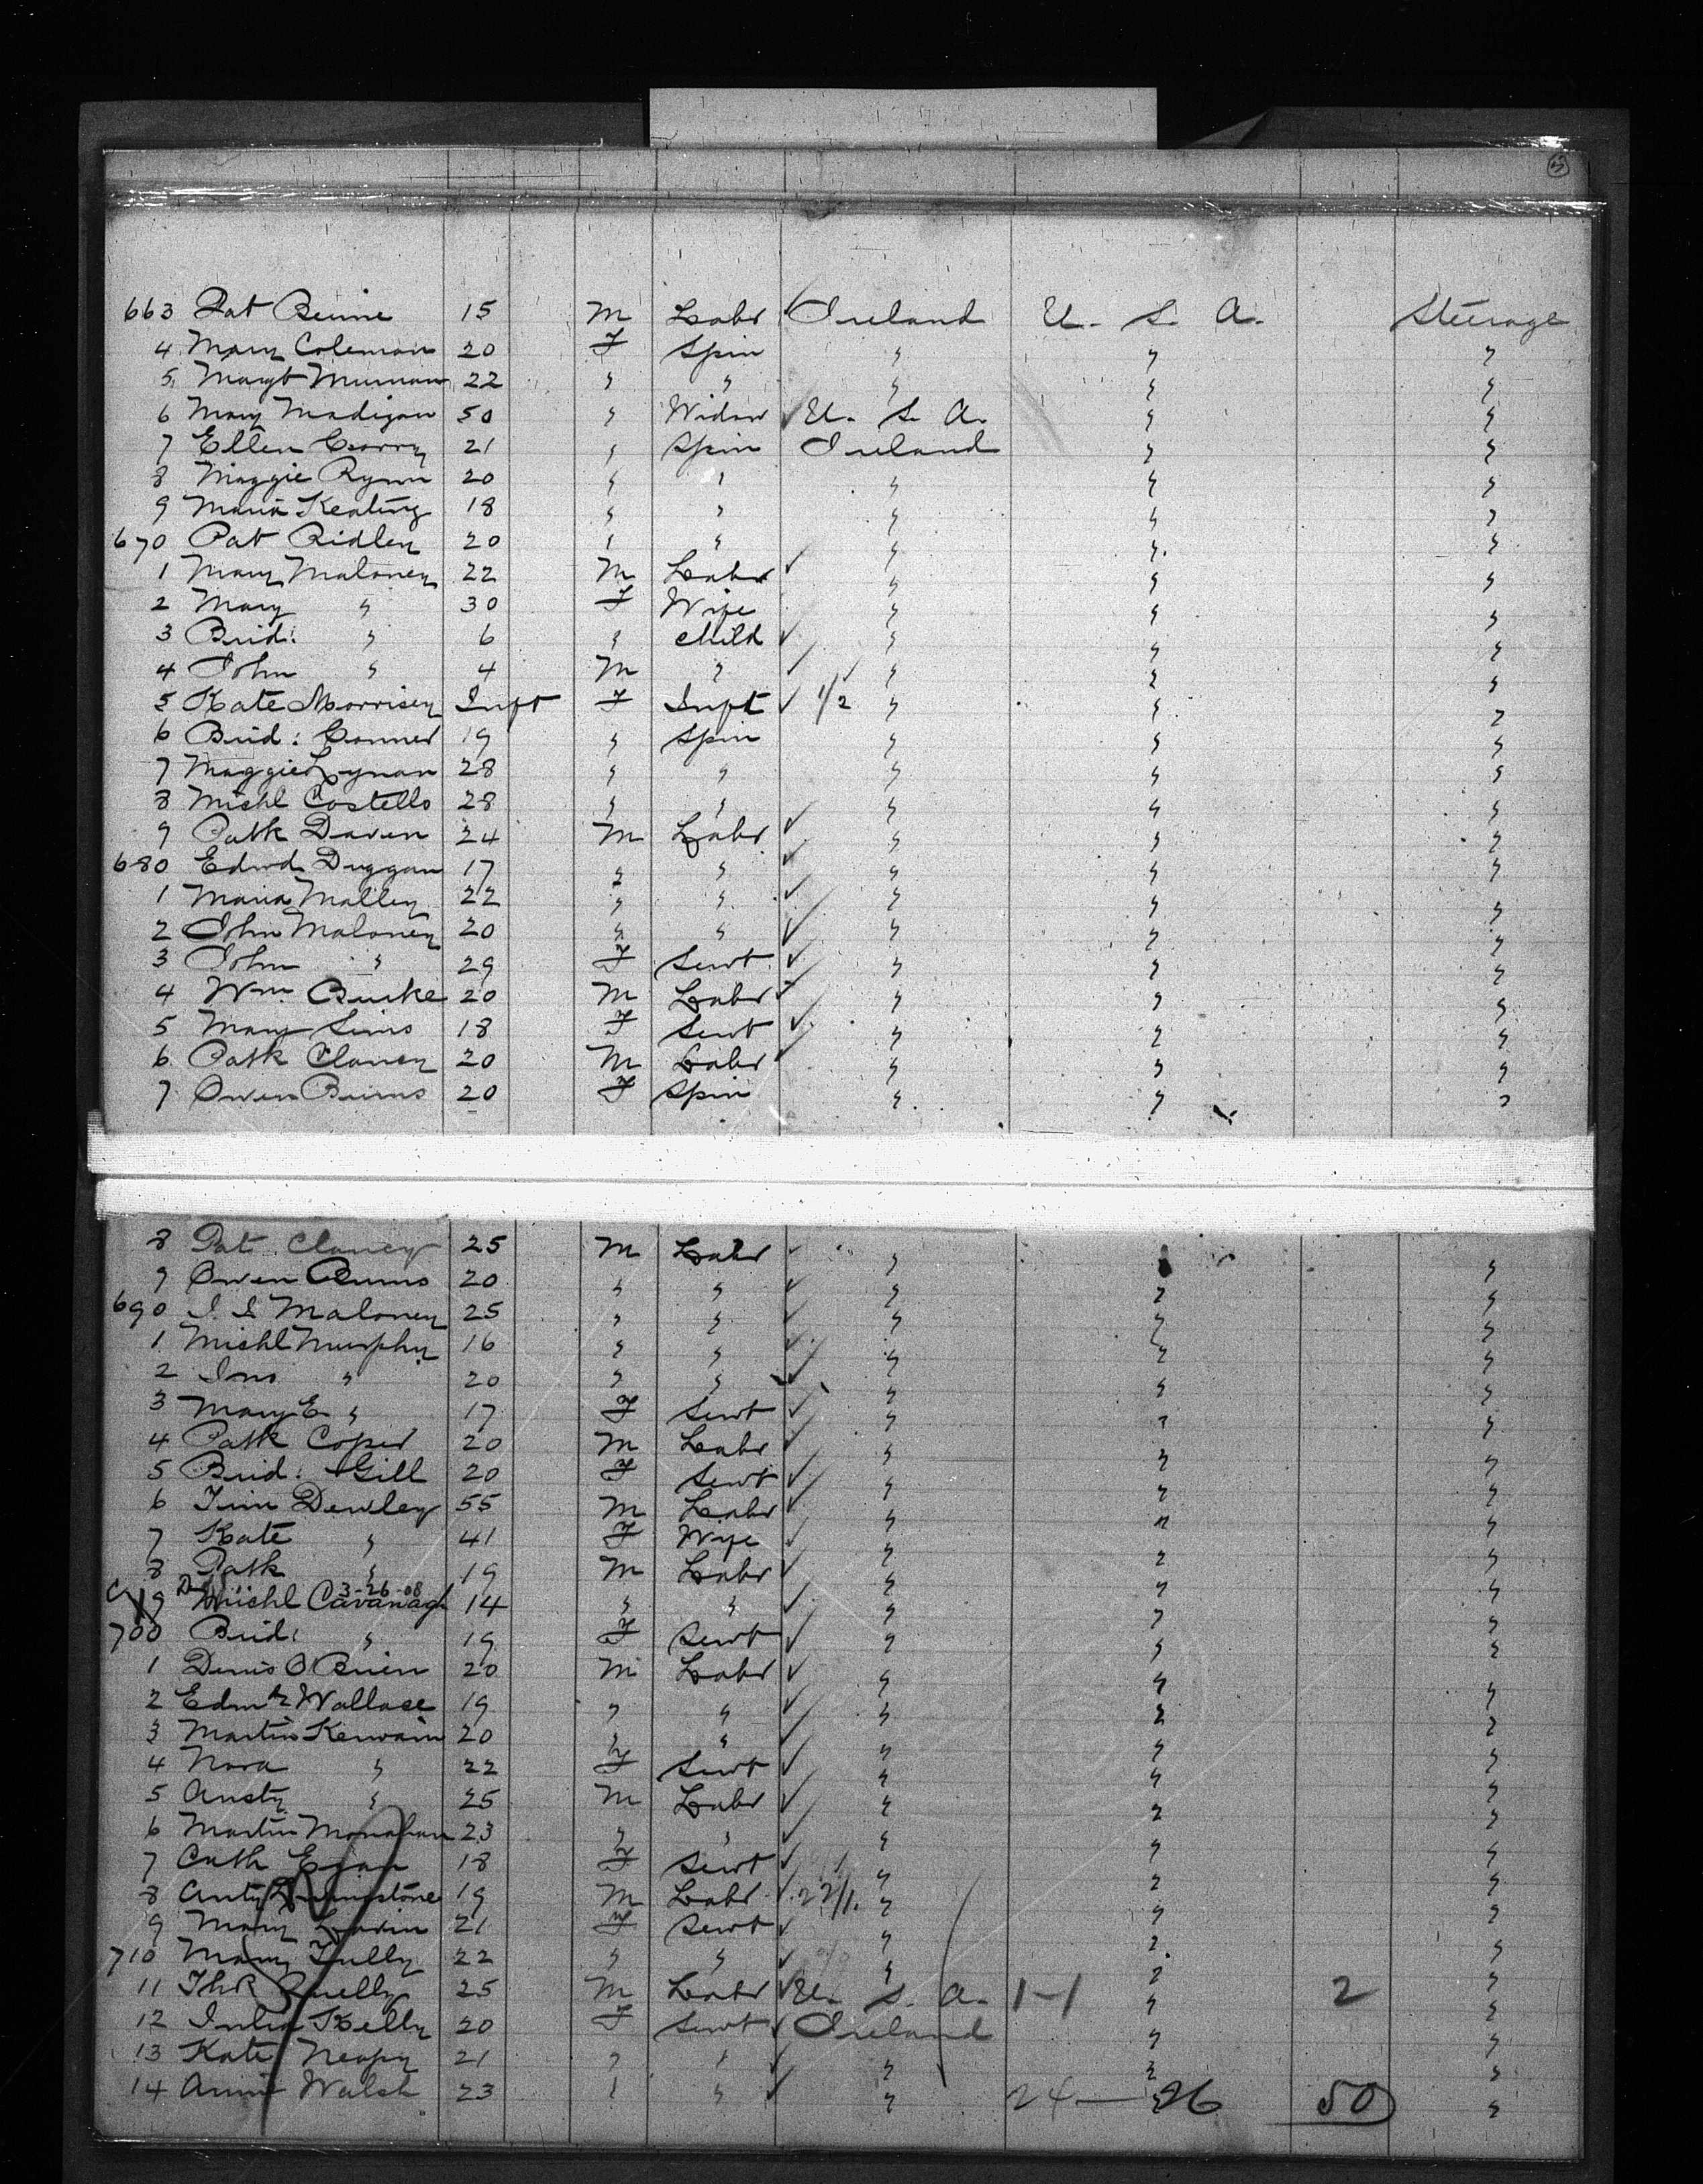 663 Pat Beirne 15 M Labr ✓ Ireland U. S. A. Steerage
4 Mary Coleman 20 F Spin " " "
5 Margt 22 " " " " "
6 Mary Madigan 50 " Widow ✓ U. S. A. " "
7 Ellen Corry 21 " Spin Ireland " "
8 Maggie Rynn 20 " " " " "
9 Maria Keating 18 " " " " "
670 Pat Ridley 20 " " " " "
1 Mary Maloney 22 M Labr ✓ " " "
2 Mary " 30 F Wife " " "
3 Brid: " 6 " Child ✓ " " "
4 John " 4 M " ✓ ✓ " " "
5 Kate Morrisey Inft F Inft ✓ 1/2 " " "
6 Brid: Conner 19 " Spin " " "
7 Maggie Lynan 28 " " " " "
8 Michl Costello 28 " " " " "
9 Patk Daven 24 M Labr ✓ " " "
680 Edwd Duggan 17 " " ✓ " " "
1 Maria Malley 22 " " ✓ " " "
2 John Maloney 20 " " ✓ " " "
3 John " 29 F Servt ✓ " " "
4 Wm. Burke 20 M Labr ✓ " " "
5 Mary Sims 18 F Servt ✓ " " "
6 Patk Clancy 20 M Labr ✓ " " "
7 Owen Burns 20 F Spin " " "
8 Pat Clancy 25 M Labr ✓ " " "
9 Owen Burns 20 " " ✓ " " "
690 J. J Maloney 25 " " ✓ " " "
1 Michl Murphy 16 " " ✓ " " "
2 Jno " 20 " " ✓ " " "
3 Mary E. " 17 F Servt ✓ " " "
4 Patk Coper 20 M Labr ✓ " " "
5 Brid: Gill 20 F Servt ✓ " " "
6 Tim Dewley 55 M Labr ✓ " " "
7 Kate " 41 F Wife ✓ " " "
8 Patk " 19 M Labr ✓ " " "
3-26-08
9 Michl Cavanagh 14 " " ✓ " " "
700 Brid: " 19 F Servt ✓ " " "
1 Denis O'Brien 20 M Labr ✓ " " "
2 Wallace 19 " " ✓ " " "
3 Martin Kerwain 20 " " ✓ " " "
4 Nora " 22 F Servt ✓ " " "
5 Austy " 25 M Labr ✓ " " "
6 Martin Monahan 23 " " ✓ " " "
7 Cath Egan 18 F Servt ✓ " " "
8 Anty 19 M Labr ✓ 22/1. " " "
9 Mary Lavin 21 F Servt ✓ " " "
710 Mary Tully 22 " " ✓ " " "
11 25 M Labr ✓ U. S. A. 1-1 " 2 "
12 Julia Kelly 20 F Servt ✓ Ireland " "
13 Kate 21 " " ✓ " " "
14 Annie Walsh 23 " " ✓ " 24 — 26 " 50 "